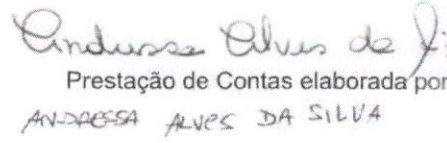 Andressa Alves da Si
Prestação de Contas elaborada por
ANDRESSA ALVES DA SILVA